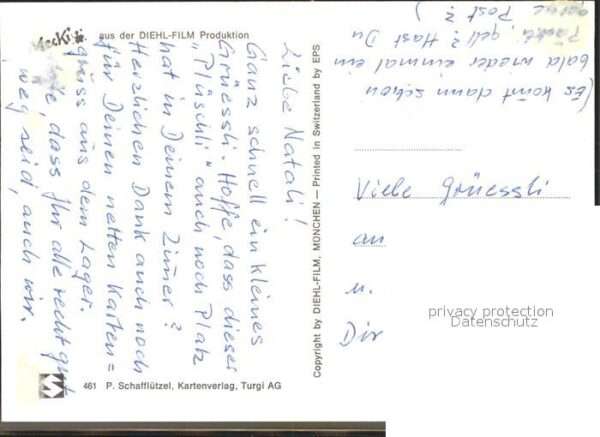 "Mecki" aus der DIEHL-FILM Produktion
Liebe Natali!
Ganz schnell ein kleines
Grüessli. Hoffe, dass dieser
"Plüschli" auch noch Platz
hat in Deinem Zimer?
Herzlichen Dank auch noch
für Deinen netten Karten=
gruss aus dem Lager.
dass Ihr alle recht gut
weg seid, auch wir.
Copyright by DIEHL-FILM, MÜNCHEN — Printed in Switzerland by EPS
461 P. Schafflützel, Kartenverlag, Turgi AG
Viele Grüessli
an
u.
Dir
(Es komt dann schon
bald wieder einmal ein
Päckli, gell? Hast Du
Post?)
privacy protection
Datenschutz